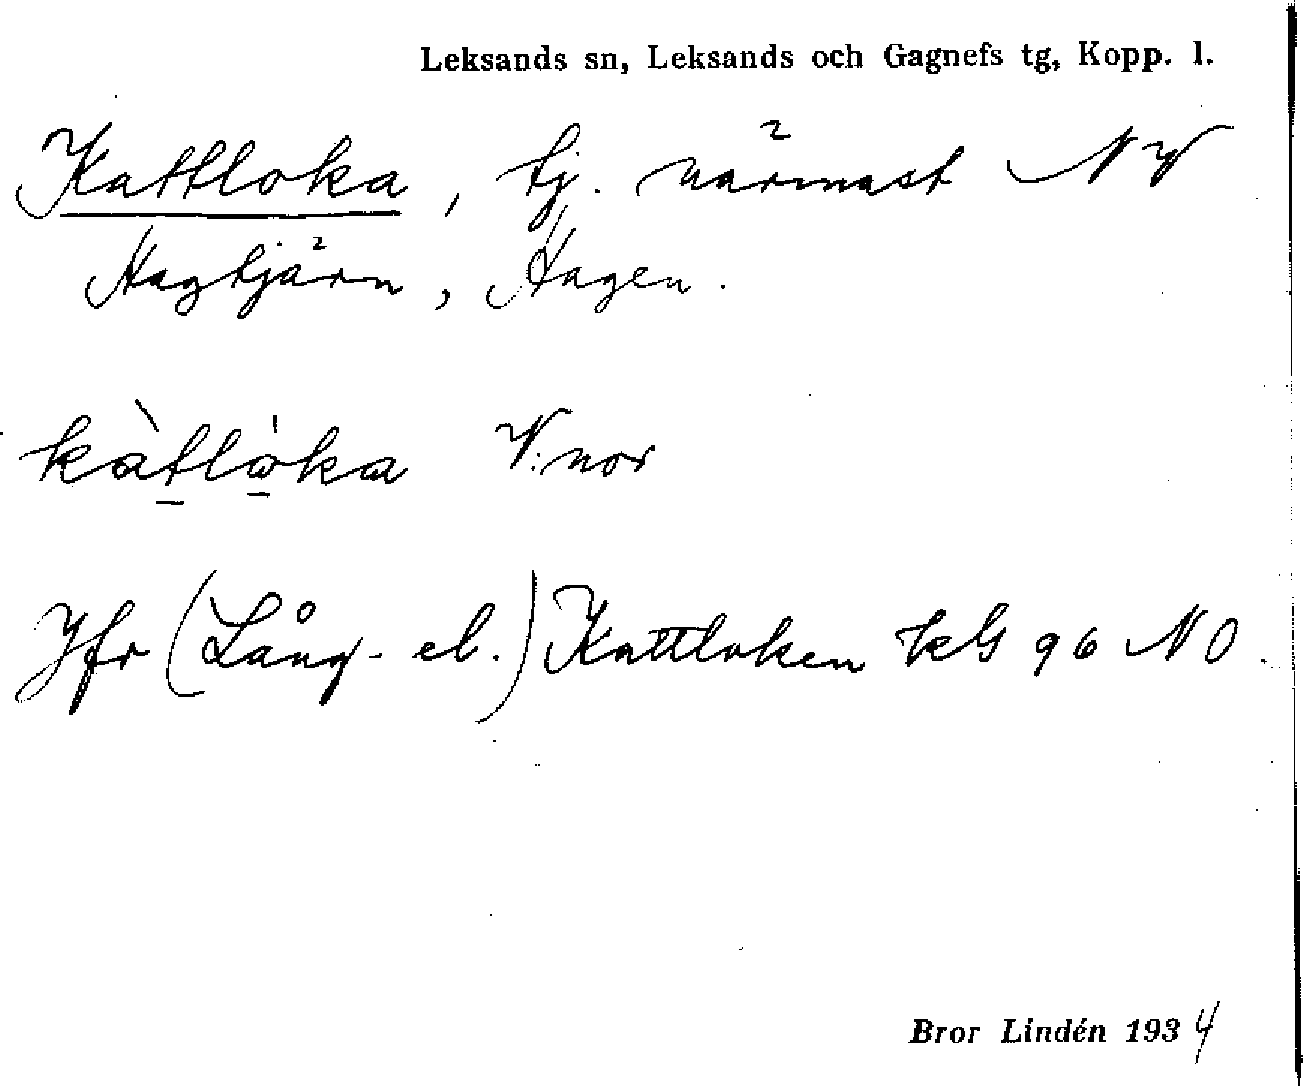 Leksands sn, Leksands och Gagnefs tg, Kopp. l.
Kattloka, tj. närmast NV
Hagtjärn, Hagen.
kàtlòka V:nor
Jfr (Lång- el.) Kattloken kbl 96 NO.
Bror Lindén 1934